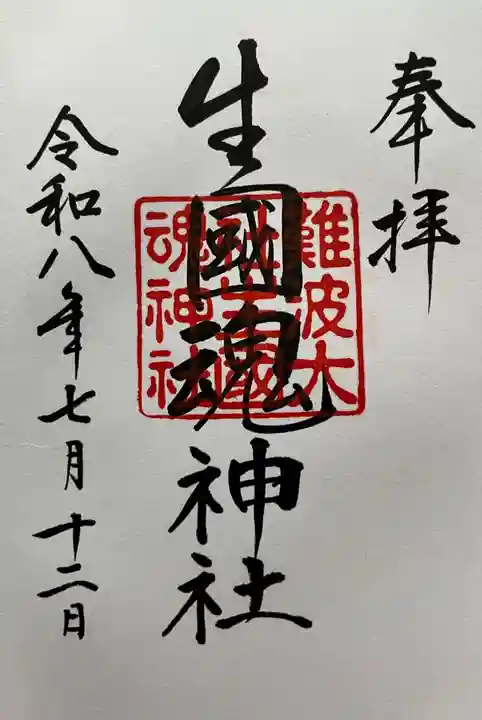 奉拝
生國魂神社
難波大
社生國
魂神社
令和八年七月十二日